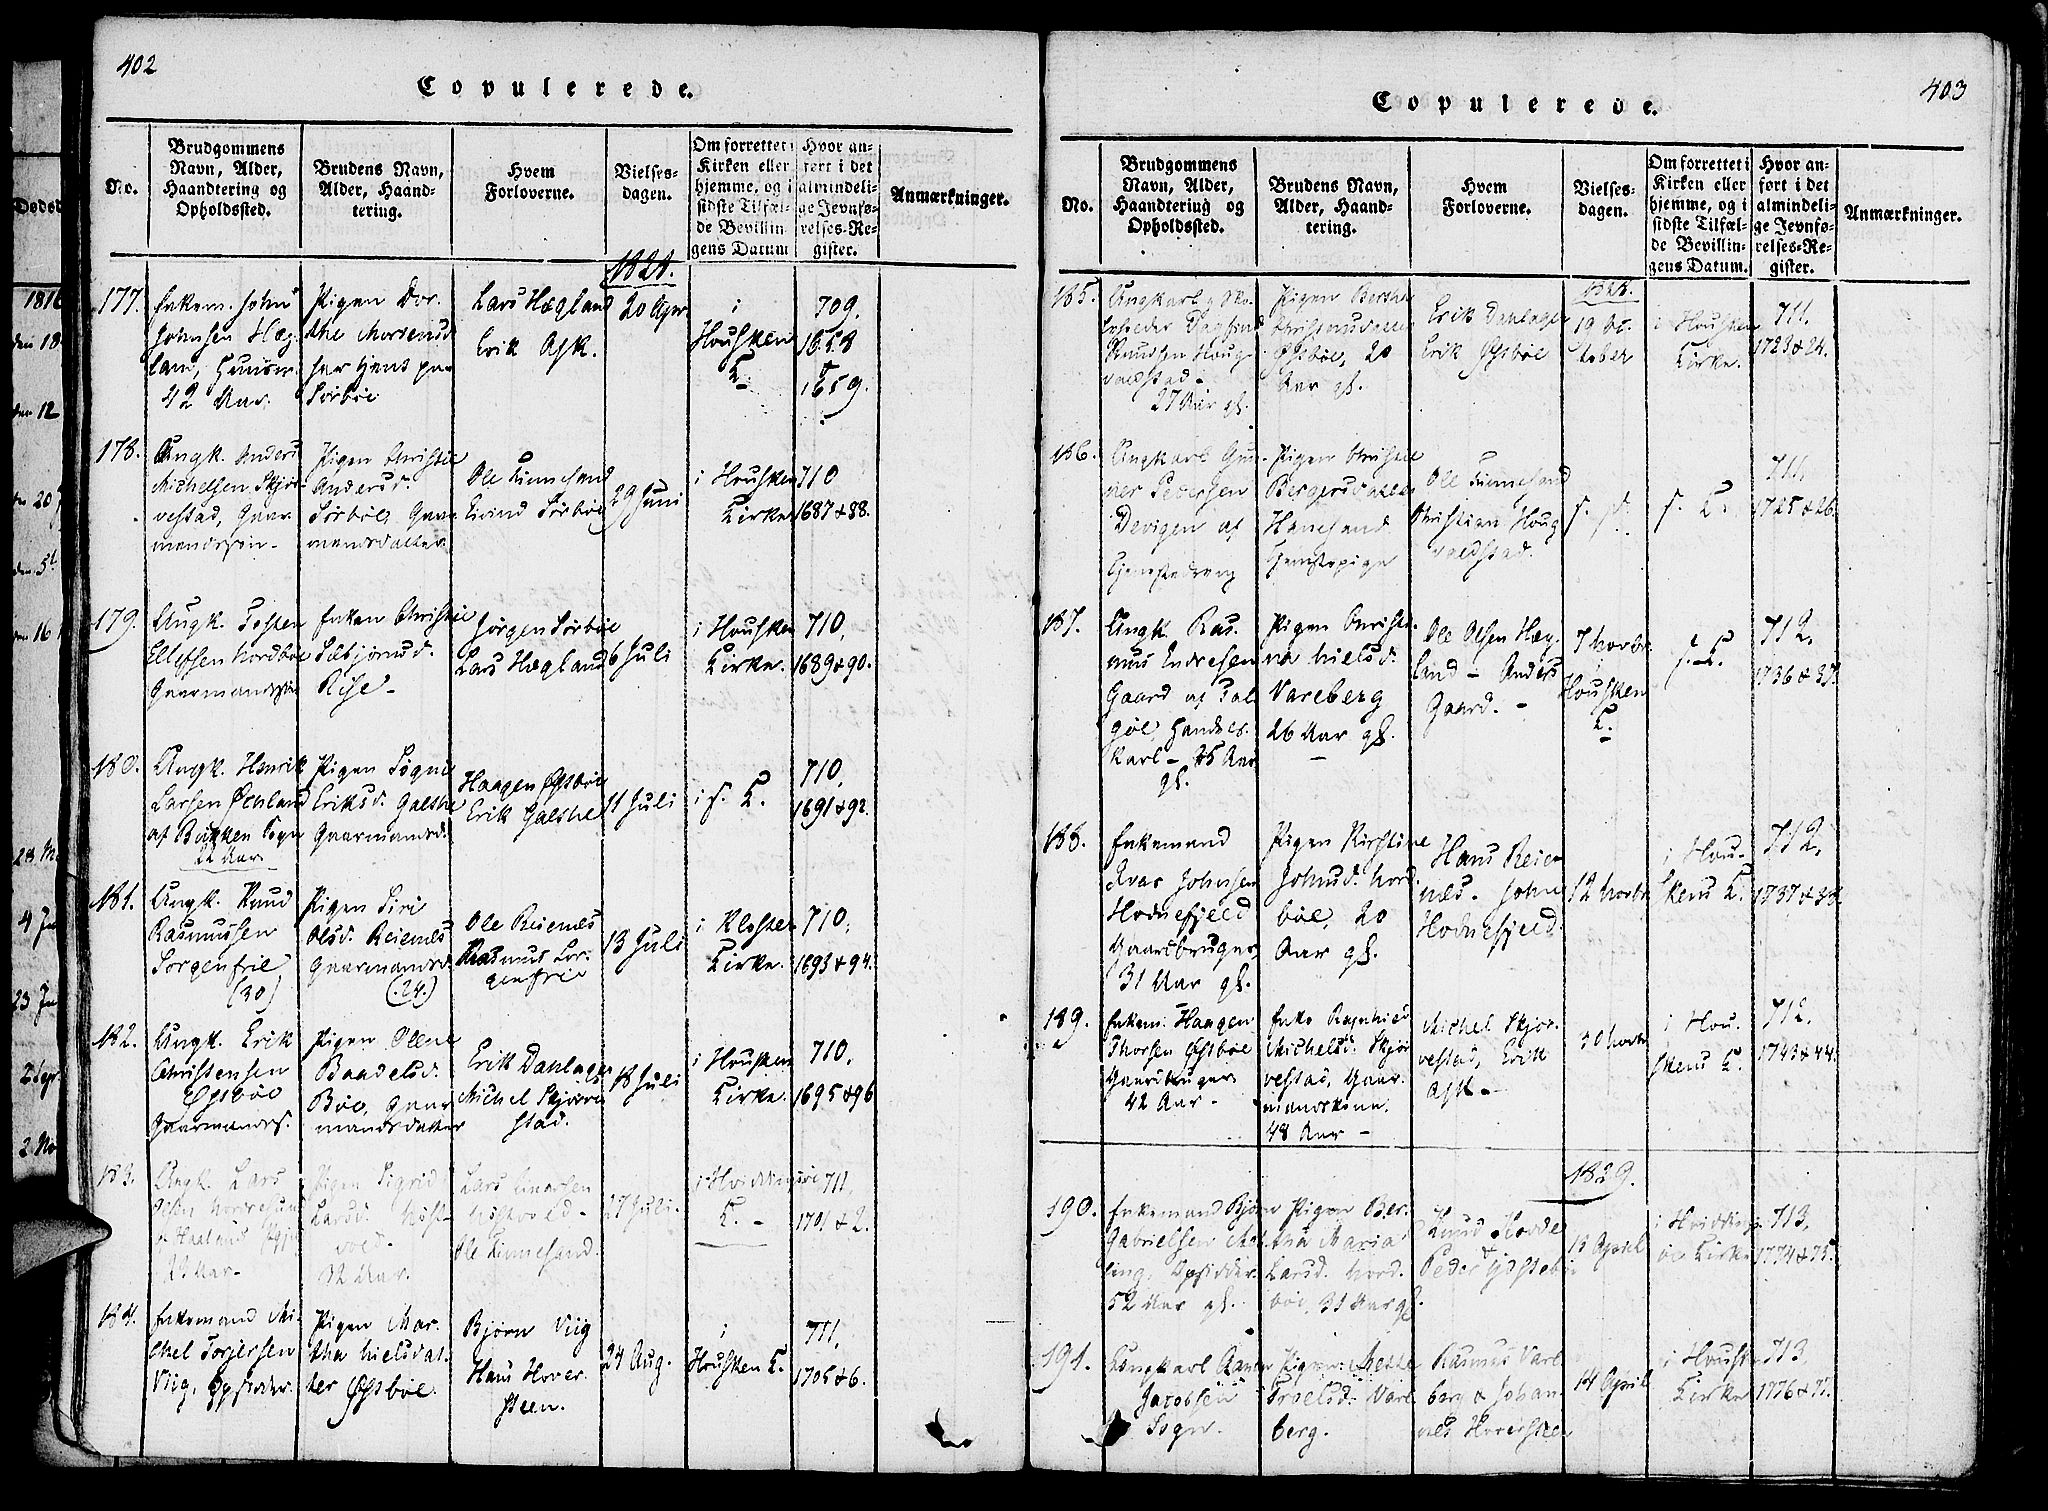 402
Copulerede.
No.
Brudgommens
Navn, Alder,
Haandtering og
Opholdssted.
Brudens Navn,
Alder, Haand-
tering.
Hvem
Forloverne.
Vielses-
dagen.
Om forrettet i
Kirken eller
hjemme, og i
sidste Tilfæl-
de Bevillin-
gens Datum
Hvor an-
ført i det
almindeli-
ge Jevnfø-
relses-Re-
gister.
Anmærkninger.
1828.
177.
Enkem. John
Johnsen Hæg-
land, Huusm.
42 Aar.
Pigen Dor-
the Mortensd
har tjent paa
Sørbøe
Lars Hægland
Erik Ask.
20 Apr.
i
Housken
K.
709.
1658
&
1659.
178.
Ungk. Anders
Michelsen Skjør-
vestad, Gaar-
mandssøn -
Pigen Christie
Andersd.
Sørbøe, Gaar-
mandsdatter
Ole Finnesand
Eivind Sørbøe
29 Juni
i Housken
Kirke
710
1687 & 88.
179.
Ungk. Tosten
Ellefsen Nordbøe
Gaarmandssøn
Enken Christie
Sæbjørnsd.
Rise -
Jørgen Sørbøe
Lars Hægland
6 Juli
i Housken
Kirke.
710,
1689 & 90.
180.
Ungk. Henrik
Larsen Øenland
af Bukken Sogn
22 Aar
Pigen Søgne
Eriksd. Galshe
Gaarmandsd.
Haagen Østbøe
Erik Galshe
11 Juli
i s. K.
710,
1691 & 92.
181.
Ungk. Knud
Rasmussen
Sorgenfrie
(30)
Pigen Siri
Olsd. Reienes
Gaarmandsd.
(24.)
Ole Reienes
Rasmus Sor-
genfrie
13 Juli
i Kloster
Kirke.
710,
1693 & 94.
182.
Ungk. Erik
Christensen
Østbøe
Gaarmands.
Pigen Olene
Baadelsd.
Bøe, Gaar-
mandsdatter
Erik Dahlager
Michel Skjørve-
stad.
18 Juli
i Housken
Kirke.
710,
1695 & 96
183.
Ungk. Lars
22 Aar -
Pigen Sigrid
Larsd.
32 Aar.
Lars Einersen
Ole Finnesand.
27 Juli.
i Hviddingsøe
K. -
711,
1701 & 2.
184.
Enkemand Mi-
chel Torjersen
Viig, Opsidder.
Pigen Mar-
tha Nielsdat-
ter Østbøe.
Bjørn Viig
Hans Hover-
steen.
24 Aug.
i
Housken K.
711,
1705 & 6.
403
Copulerede.
No.
Brudgommens
Navn, Alder,
Haandtering og
Opholdssted.
Brudens Navn,
Alder, Haand-
tering.
Hvem
Forloverne.
Vielses-
dagen.
Om forrettet i
Kirken eller
hjemme, og i
sidste Tilfæl-
de Bevillin-
gens Datum.
Hvor an-
ført i det
almindeli-
ge Jevnfø-
relses-Re-
gister.
Anmærkninger.
1828.
185.
Ungkarl & Sko-
Knudsen Houg-
valdstad -
27 Aar gl.
Pigen Berthe
Østbøe, 20
Aar gl.
Erik Dahlager
Erik Østbøe
19 Oc-
tober
i Housken
Kirke.
711.
1723 & 24.
186.
Ungkarl Gun-
ner Pedersen
Devigen af
Pigen Christie
Bergersdatter
Hanesand
Tjenestepige
Ole Finnesand
Christian Houg-
valdstad.
s. d.
s. K.
711,
1725 & 26.
187.
Ungk. Ras-
mus Endresen
Gaard af Tal-
gøe, Handels-
karl - 25 Aar
gl.
Pigen Christi-
na Nielsd.
Vareberg
26 Aar gl.
Ole Olsen Hæg-
land - Anders
Gaard. -
7 Novbr.
Housken
K.
s. K.
712,
1736 & 37.
188.
Enkemand
Ivar Johnsen
Hodnefjeld
Gaardbruger
31 Aar gl.
Pigen Kirstine
Johnsd. Nord-
bøe, 20
Aar gl.
Hans Reie-
nes. John
Hodnefjeld.
12 Novbr
i Hou-
skens K.
712,
1737 & 38.
189.
Enkem. Haagen
Thorsen Østbøe
Gaardbruger
42 Aar -
Enke Ragnhild
Michelsd. Skjør-
vestad, Gaar-
mandskone.
48 Aar -
Michel Skjør-
vestad, Erik
Ask -
30 Novbr
i Hou-
skens K.
712.
1743 & 44.
1829.
190.
Enkemand Bjørn
Gabrielsen Mel-
ling, Opsidder.
52 Aar gl.
Pigen Ber-
tha Maria
Larsd. Nord-
bøe, 31 Aar gl.
Knud Hovde
&
Peder Ydstebøe
13 April
i Hviddings-
øe Kirke
713,
1774 & 75.
191.
Ungkarl
Jacobsen
Sogn.
Pigen Mette
Troelsd. Varl-
berg.
Rasmus Varl-
berg & Johan-
nes Hoversteen
14 April
i Housken
Kirke
713
1776 & 77.